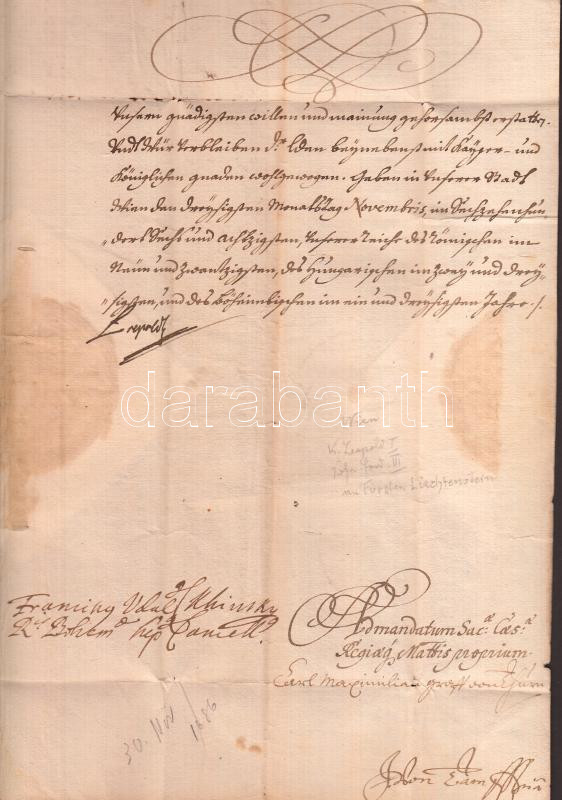 Unsern gnädigsten willen und mainung gehorsambst erstatten.
Undt Wür Verbleiben Dr. Lden beynebenst mit Kayser- und
Königlichen gnaden wohlgewogen. Geben in Unserer Stadt
Wien den dreysigsten Monatstag Novembris, im Sechzehenhun
dert Sechs und achtzigsten, Unserer Reiche des Römischen im
Neun und zwantzigsten, des Hungarischen im zwey und drey-
sigsten, und des Böheimbischen im ein und dreysigsten Jahre ./.
Leopold
darabanth
Wien
K. Leopold I
Sohn Ferd. III
an Fürsten Liechtenstein
Franciscus Udal Khinsky
Rs. Bohem Sup Cancell
Ad mandatum Sac: Cæs:
Regiæq Mattis proprium.
Carl Maximilian graff von Thurn
30. Nov 1686